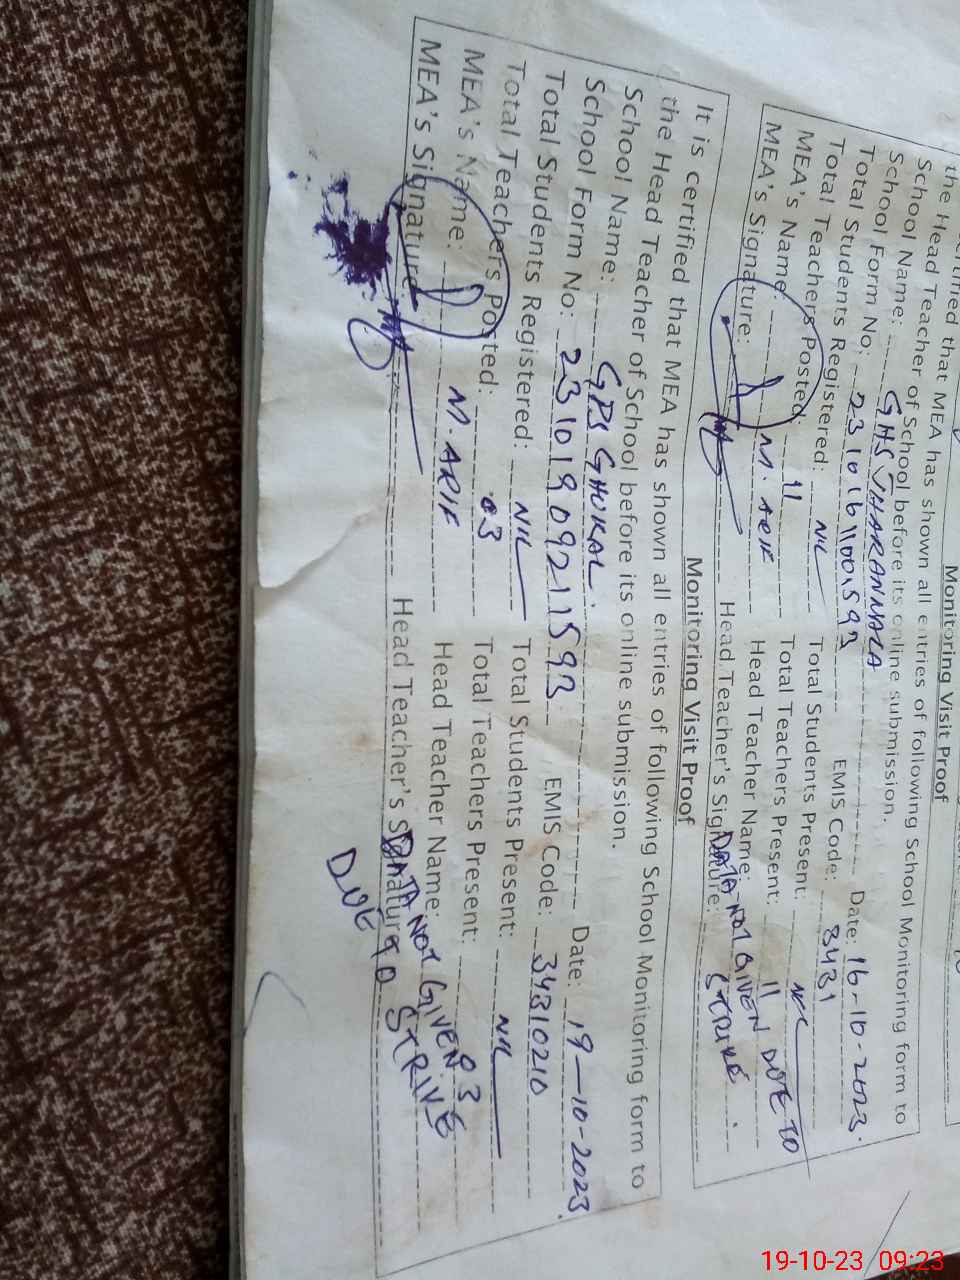 the Head Teacher of School before its online submission.
School Name: GHS JHARANWALA Date: 16-10-2023.
School Form No: 23101611001593 EMIS Code: 3431
Total Students Registered: NIL Total Students Present: NIL
Total Teachers Posted: 11 Total Teachers Present: 11
MEA's Name: M. ARIF Head Teacher Name: DATA NOT GIVEN DUE TO
MEA's Signature: Head Teacher's Signature: STRIKE
Monitoring Visit Proof
It is certified that MEA has shown all entries of following School Monitoring form to
the Head Teacher of School before its online submission.
School Name: GPS GHUKAL. Date: 19-10-2023.
School Form No: 23101909211593 EMIS Code: 34310210
Total Students Registered: NIL Total Students Present: NIL
Total Teachers Posted: 03 Total Teachers Present: 03
MEA's Name: M. ARIF Head Teacher Name:
MEA's Signature: Head Teacher's Signature: DATA NOT GIVEN
DUE TO STRIKE
19-10-23 09:23